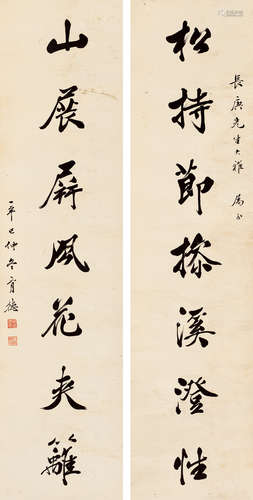 長庚先生大雅 属正
松持節操溪澄性
山展屏風花夾籬
辛巳仲冬育德